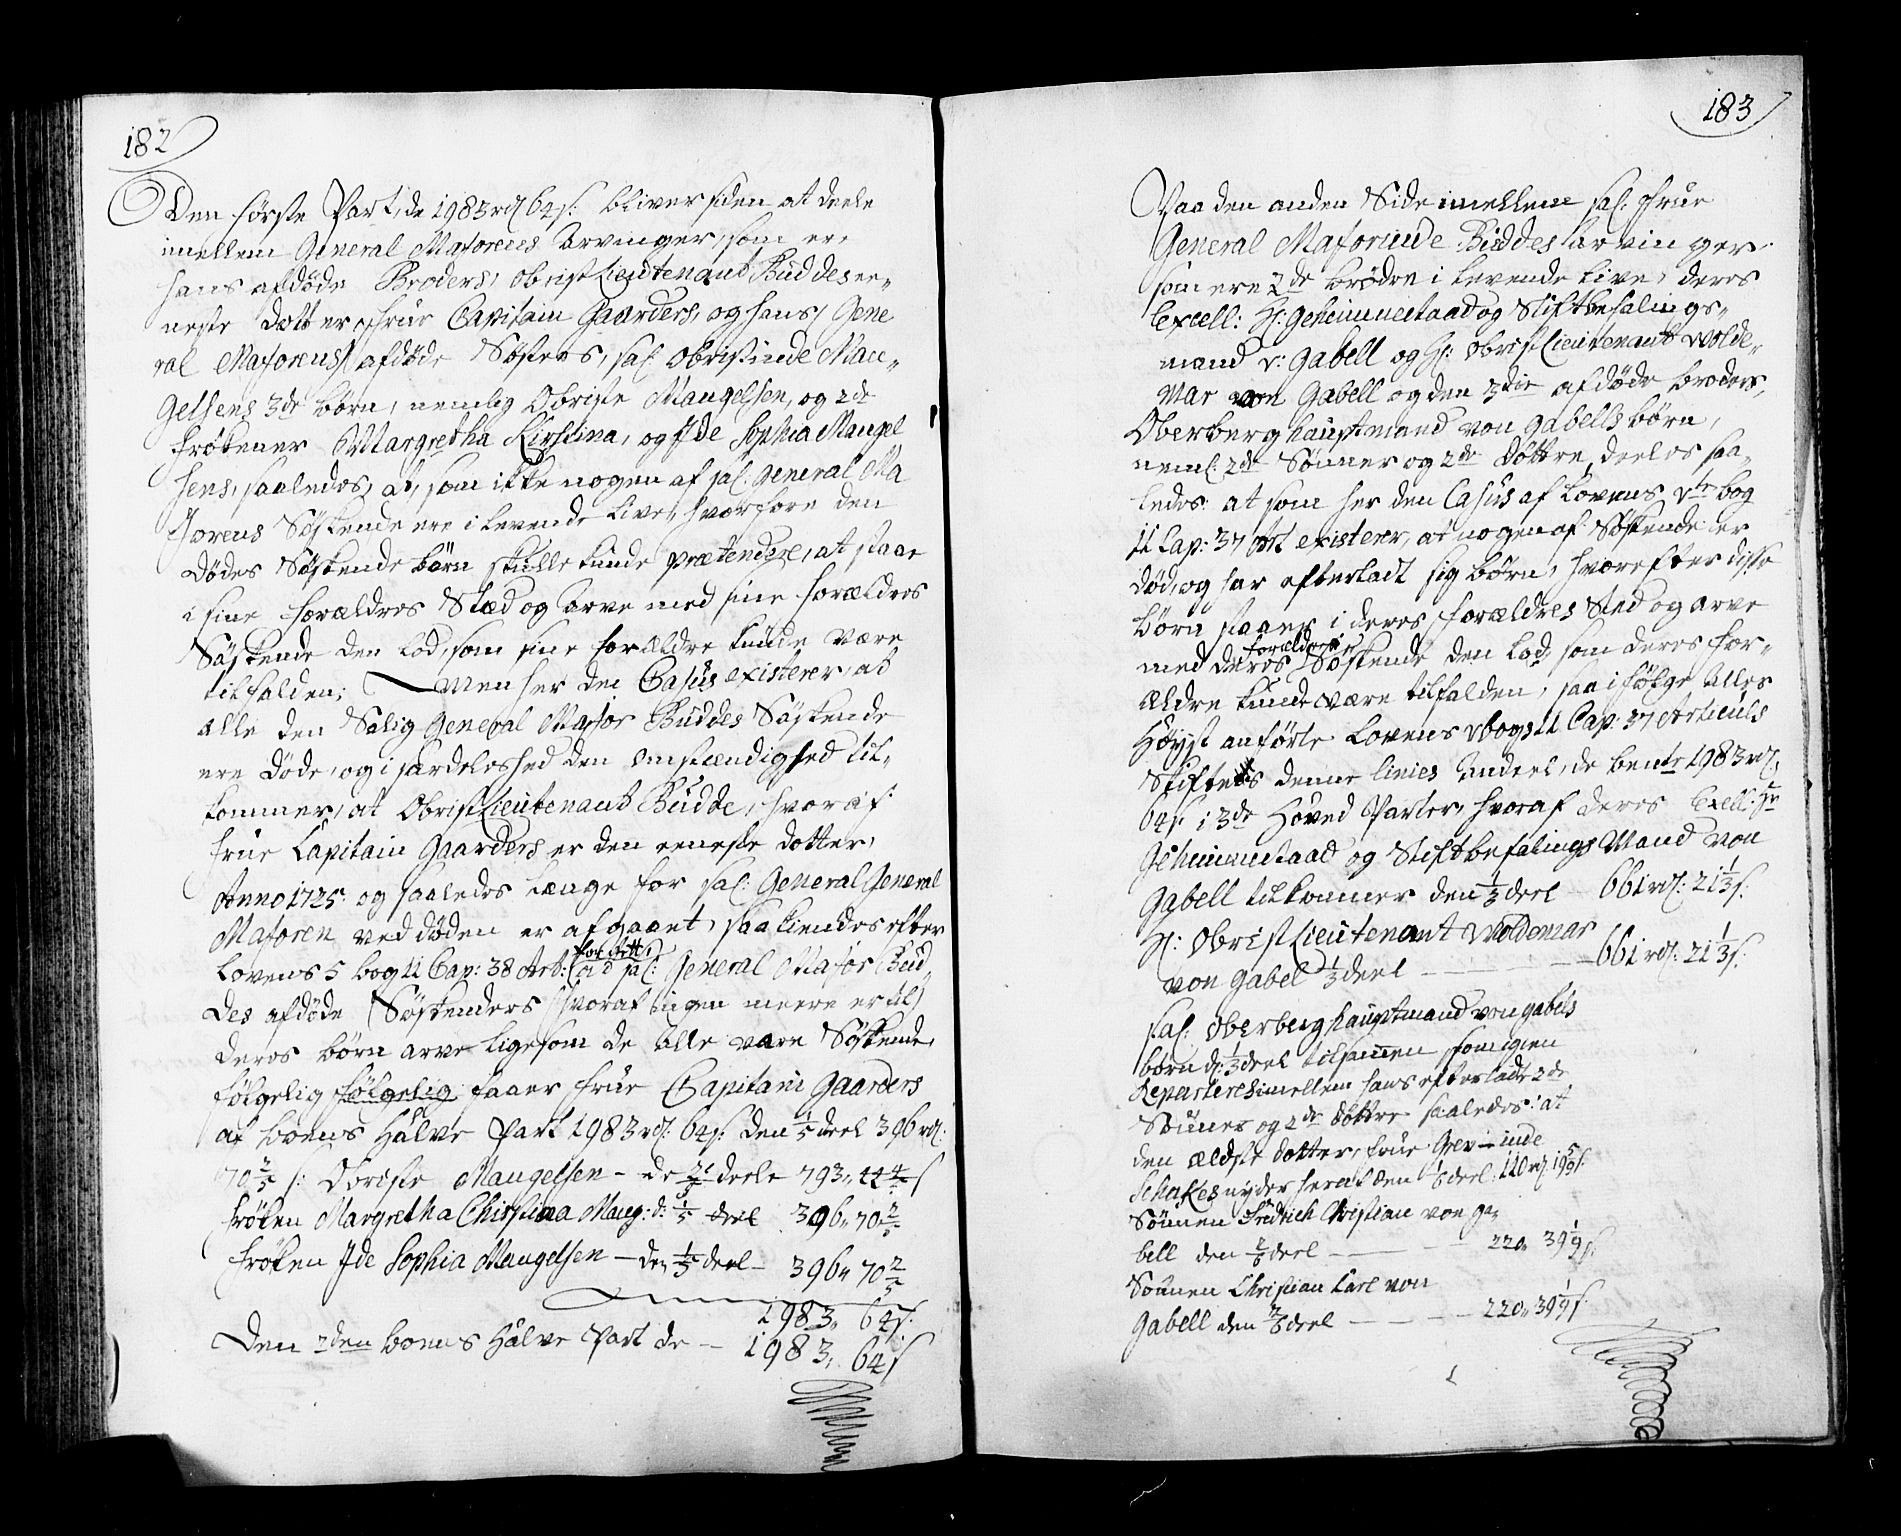 182
Den første Part, de 1983 rdl 64 s: bliver siden at deele
imellem General Majorens Arvinger, som ere
hans afdøde Broders, Obrist Lieutenant Buddes ee-
neste Dotter, Frue Capitain Gaarders, og hans, Gene
ral Majorens afdøde Søsters, sal. Obristinde Man-
gelsens 3de børn, nemlig Obriste Mangelsen, og 2de
Frøkener Margretha Kirstina, og Ide Sophia Mangel
sens, saaledes, at, som ikke nogen af sal. General Ma
jorens Søskende ere i levende Live, hvorfore den
dødes Søskende børn skulle kunde prætendere, at staae
i sine Forældres Stæd og Arve med sine Forældres
Søskende den Lod, som sine Forældre kunde være
tilfalden; Men her den Casus existerer, at
alle den Salig General Major Buddes Søskende
ere døde, og i særdeleshed den omstændighed til-
kommer, at Obrist Lieutenant Budde, hvoraf
Frue Capitain Gaarders er den eeneste dotter,
Anno 1725 og saaledes længe før sal: General General
Majoren ved døden er afgaaet, saa kiendes efter
Lovens 5 bog 2 Cap: 38 Art: for Rett: at sal: General Major Bud
des afdøde Søskenders (hvoraf ingen meere er til)
deres børn arve ligesom de alle vare Søskende,
følgelig følgelig faaer Frue Capitain Gaarders
af boens Halve Part 1983 rdl: 64 s: den 1/5 deel 396 rdl:
70 2/5 s: Obriste Mangelsen - de 2/5 deele 793 " 44 4/5 s
Frøken Margretha Chirstina Mang: d: 1/5 deel 396 " 70 2/5
Frøken Ide Sophia Mangelsen - den 1/5 deel - 396 " 70 2/5
1983 " 64 s:
Den 2den boens Halve Part de - 1983 " 64 s
183
Paa den anden Side imellem sal. Frue
General Majorinde Buddes arvinger
som ere 2de brødre i levende Live, deres
Excell: Hr. Geheimeraad og Stiftbefalings-
mand v: Gabell og Hr: Obrist Lieutenant Wolde-
mar von Gabell og den 3die afdøde broders,
Oberberghauptmand von Gabells børn,
neml: 2de Sønner og 2de Døttre, deeles saa-
ledes: at som her den Casus af Lovens 5te bog
2 Cap: 37 Art existerer, at nogen af Søskende er
død, og har efterladt sig børn, hvorefter disse
børn staaer i deres Forældres Sted og arve
med deres Forældres Søskende den Lod, som deres For-
ældre kunde være tilfalden, saa i følge Alles
Høyst anførte Lovens 5 bogs 2 Cap: 37 Articuls
Skiftes denne Linies Andeel, de bente 1983 rdl,
64 s. i 3de Hoved Parter, hvoraf deres Excell: Hr
Geheimeraad og Stiftbefalings Mand von
Gabell tilkommer den 1/3 deel - 661 rdl: 21 1/3 s:
Hr: Obrist Lieutenant Woldemar
von Gabel 1/3 deel - - - - 661 rdl: 21 1/3 s:
sal: Oberberghauptmand von Gabels
børn d: 1/3 deel tilsammen som igien
Reparteres imellem hans efterladte 2de
Sønner og 2de døttre saaledes: at
den ældste dotter, Frue Grevinde
Schakes nyder heraf den 1/6 deel: 110 rdl 19 5/9 s:
Sønnen Fridrich Christian von Ga-
bell den 2/6 deel - - - 220 " 39 1/9 s:
Sønnen Christian Carl von
Gabell den 2/6 deel - - - - 220 " 39 1/9 s: